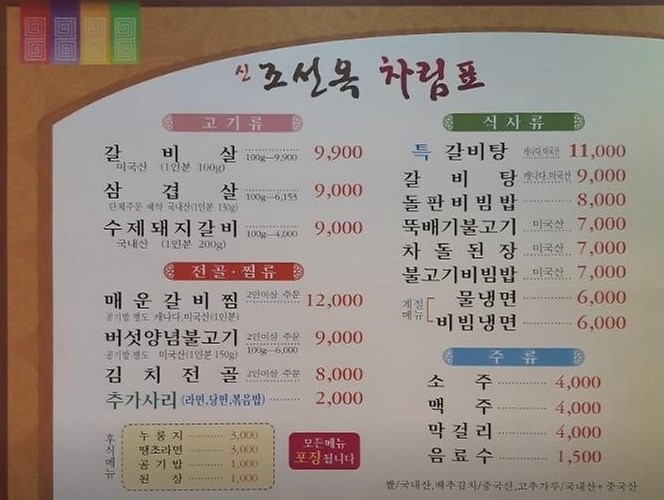 신 조선옥 차림표
고기류
갈비살 100g—9,900 9,900
미국산 (1인분 100g)
삼겹살 100g—6,153 9,000
단체주문 예약 국내산(1인분 130g)
수제돼지갈비 100g—4,000 9,000
국내산 (1인분 200g)
전골·찜류
매운갈비찜 2인이상 주문 12,000
공기밥 별도 캐나다,미국산(1인분)
버섯양념불고기 2인이상 주문 9,000
공기밥 별도 미국산(1인분 150g) 100g—6,000
김치전골 2인이상 주문 8,000
추가사리 (라면,당면,볶음밥) 2,000
후식메뉴
누룽지 3,000
땡초라면 3,000
공기밥 1,000
된장 1,000
모든메뉴
포장됩니다
식사류
특 갈비탕 캐나다,미국산 11,000
갈비탕 캐나다,미국산 9,000
돌판비빔밥 8,000
뚝배기불고기 미국산 7,000
차돌된장 미국산 7,000
불고기비빔밥 미국산 7,000
계절메뉴
물냉면 6,000
비빔냉면 6,000
주류
소주 4,000
맥주 4,000
막걸리 4,000
음료수 1,500
쌀/국내산,배추김치/중국산,고추가루/국내산+중국산